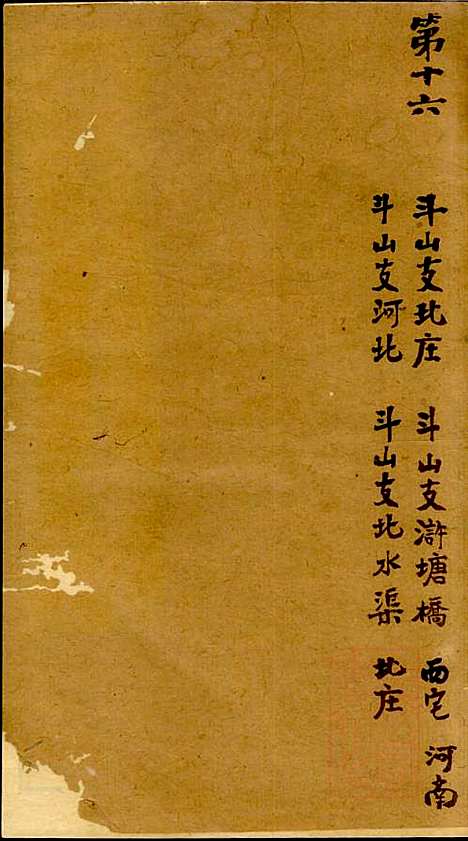 第十六
斗山支北庄　斗山支滸塘橋　西宅　河南
斗山支河北　斗山支北水渠　北庄